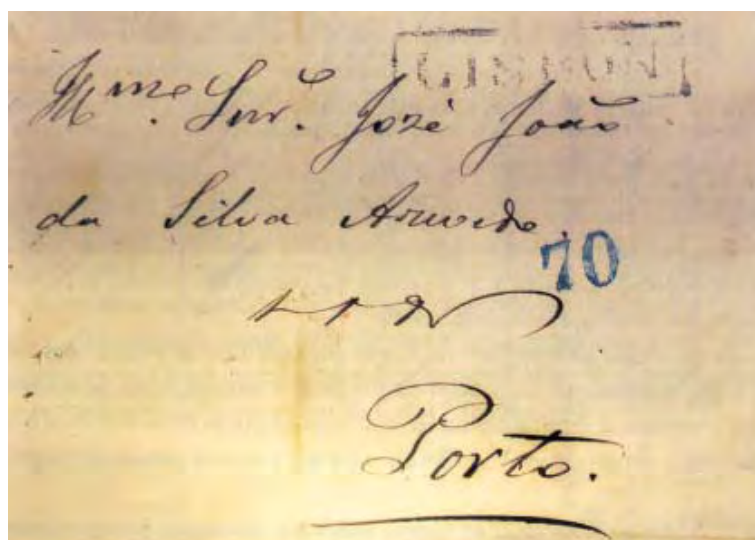 LISBON
Illmo. Snr. José João
da Silva Azevedo.
70
Porto.